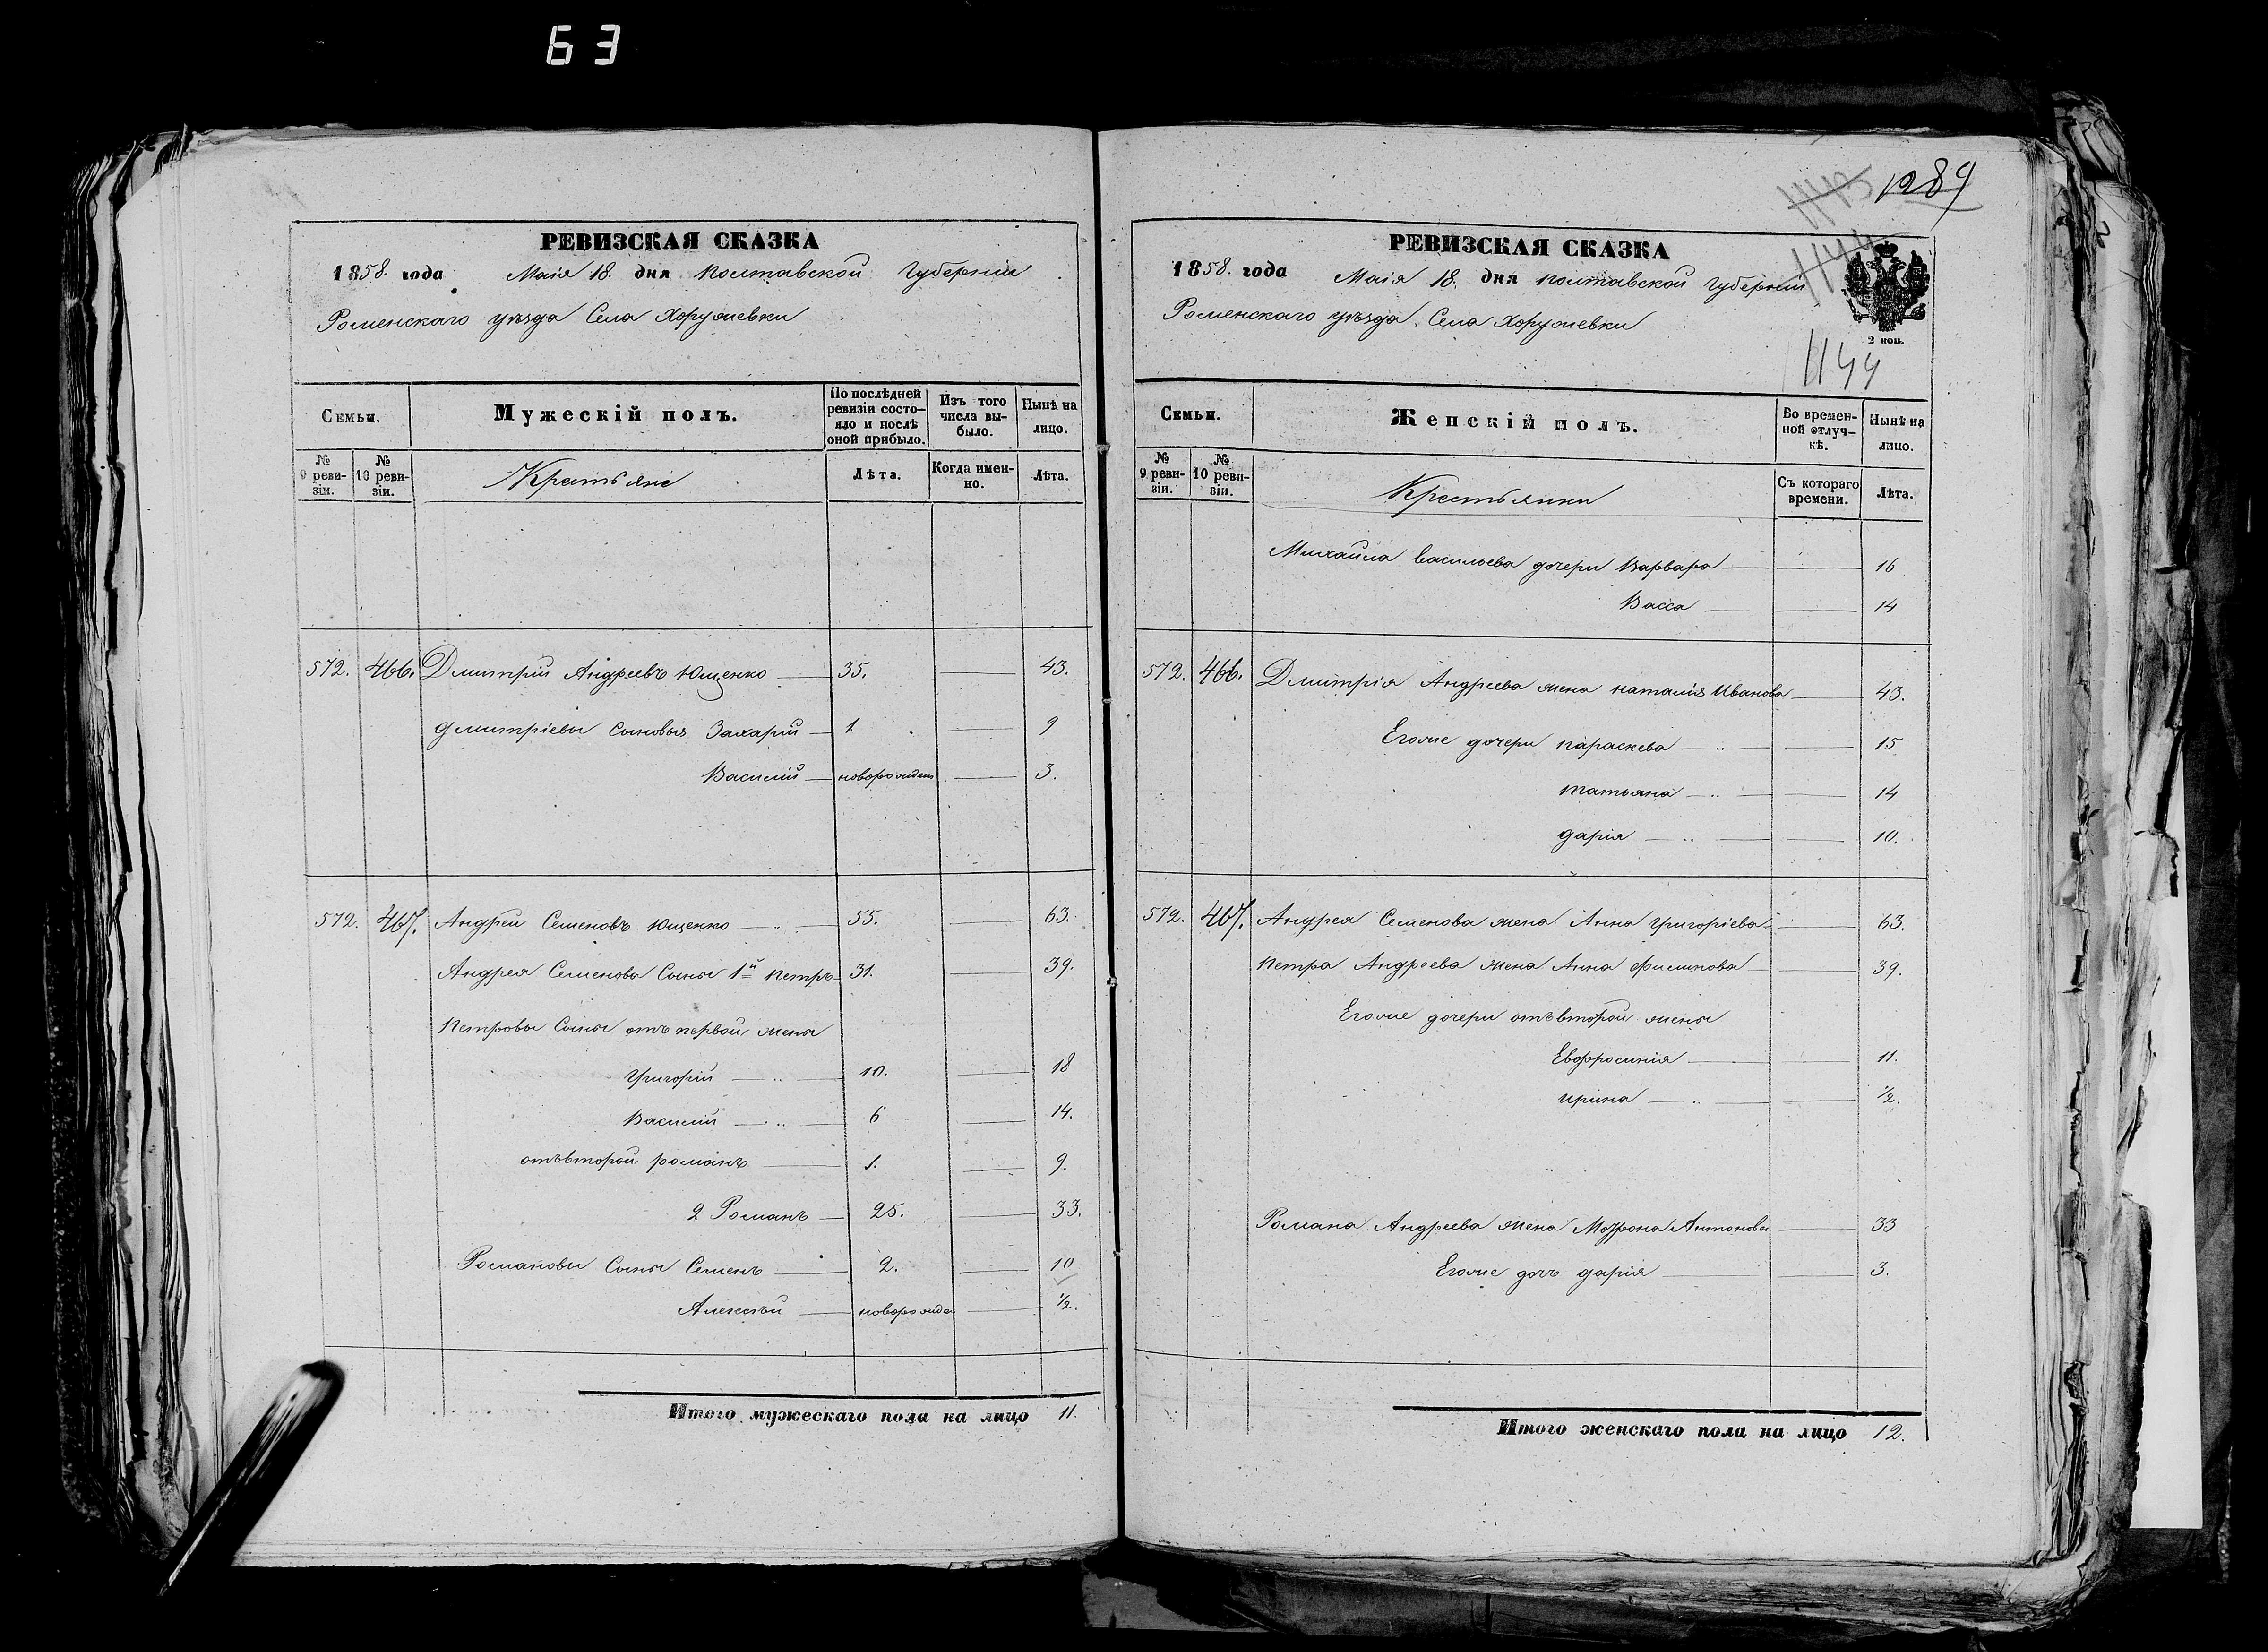 63
РЕВИЗСКАЯ СКАЗКА
1858. года Маія 18. дня Полтавской Губерніи
Роменскаго уѣзда Села Хоружевки
Семьи.
Мужескій полъ.
По послѣдней ревизіи состояло и послѣ оной прибыло.
Изъ того числа выбыло.
Нынѣ на лицо.
№ 9 ревизіи.
№ 10 ревизіи.
Крестьяне
Лѣта.
Когда именно.
Лѣта.
572. 466. Дмитрій Андреевъ Ющенко — 35. — 43.
дмитріевы Сыновья Захарій — 1 — 9
Василій — новорожден — 3.
572. 467. Андрей Семеновъ Ющенко — 55. — 63.
Андрея Семенова Сыны 1й Петръ — 31. — 39.
Петровы Сыны отъ первой жены
Григорій — 10. — 18
Василій — 6 — 14.
отъ второй романъ — 1. — 9.
2 Романъ — 25. — 33.
Романовы Сыны Семенъ — 2. — 10
Алексѣй — новорожде — 1/2.
Итого мужескаго пола на лицо 11.
1289
1143
1144
РЕВИЗСКАЯ СКАЗКА
1858. года Маія 18. дня Полтавской Губерніи
Роменскаго уѣзда Села Хоружевки
2 коп.
1144
Семьи.
Женскій полъ.
Во временной отлучкѣ.
Нынѣ на лицо.
№ 9 ревизіи.
№ 10 ревизіи.
Крестьянки
Съ котораго времени.
Лѣта.
Михайла Васильева дочери Варвара — — 16
Васса — — 14
572. 466. Дмитрія Андреева жена наталія Иванова — 43.
Егоже дочери параскева — — 15
татьяна — — 14
дарія — — 10.
572. 467. Андрея Семенова жена Анна Григоріева — 63.
Петра Андреева жена Анна Филипова — — 39.
Егоже дочери отъ второй жены
Евфросинія — — 11.
ирина — — 1/2.
Романа Андреева жена Мотрона Антонова — 33
Егоже дочь дарія — — 3.
Итого женскаго пола на лицо 12.